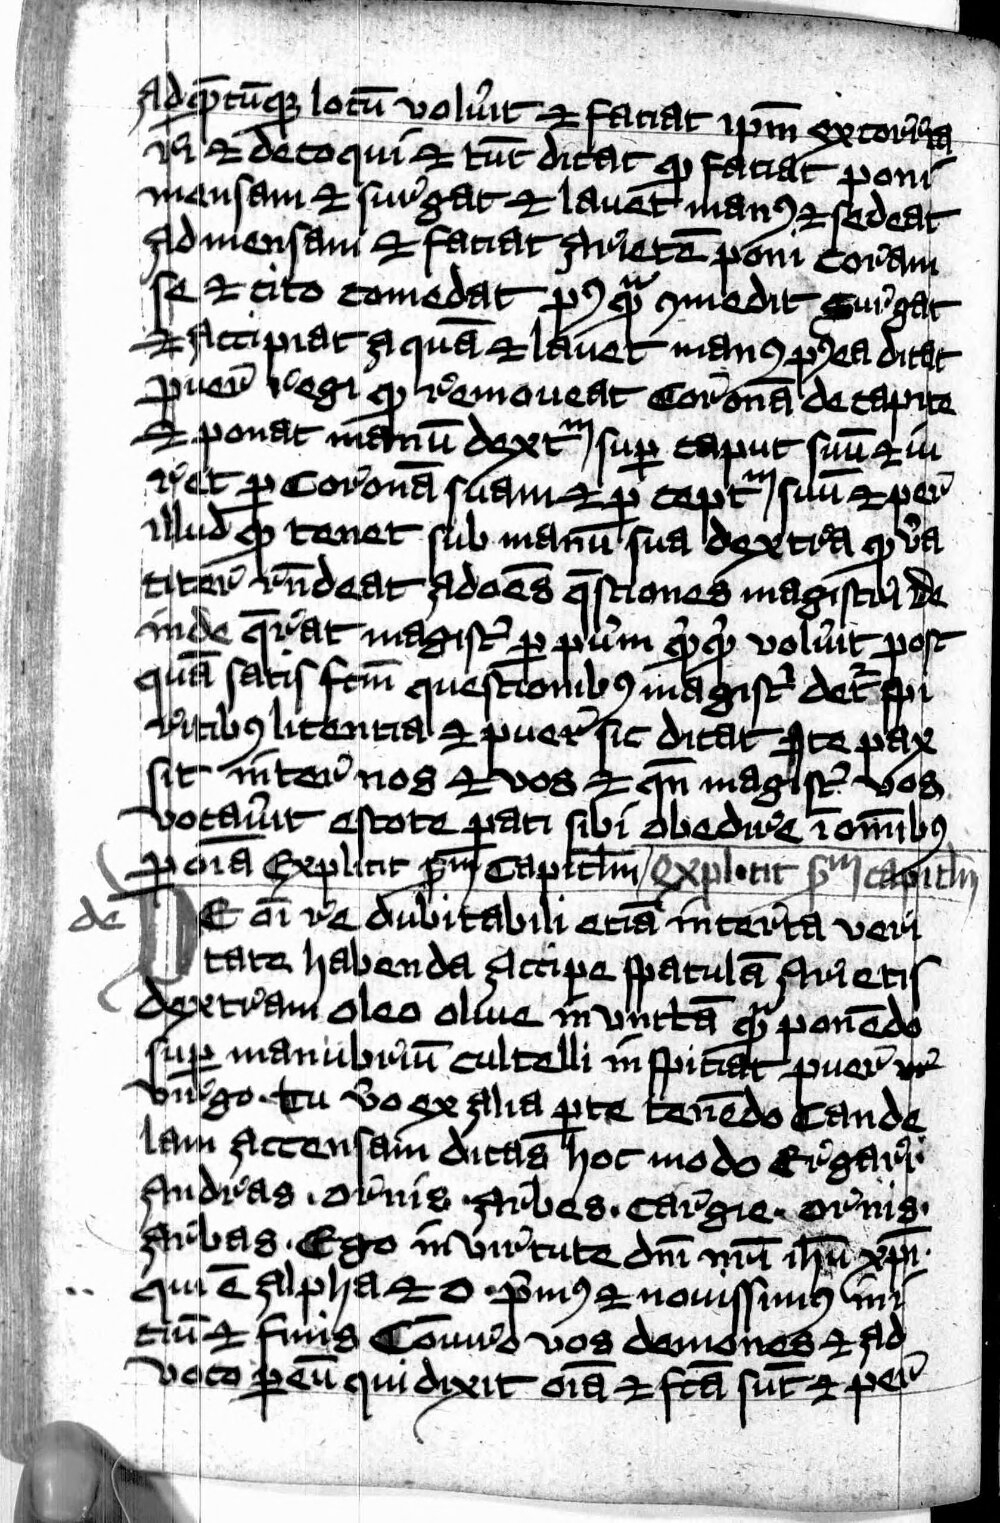 Ad q̄cūqꝫ locū volūit ⁊ faciat ip̄m excoria
ri ⁊ decoqui ⁊ tūc dicat ꝙ faciat poni
mensam ⁊ surgat ⁊ lauet manꝰ ⁊ sedeat
ad mensam ⁊ faciat arietē poni coram
se ⁊ cito comedat pꝰ ꝙ̄ ꝯmedit surgat
⁊ accipiat aquā ⁊ lauet manꝰ pꝰea dicat
puer regi ꝙ remoueat coronā de capite
⁊ ponat manū dextᵐ sup̱ caput suū ⁊ iu
ret ꝑ coronā suam ⁊ ꝑ ceptᵐ suū ⁊ per
illud ꝙ tenet sub manu sua dextra ꝙ v̓a
citer rn̄deat ad oēs q̄stiones magistri de
inde q̄rat magist̓ ꝑ pum volūit post
quā satis fcm̄ questionibꝰ magist̓ det̓ spi
ritibꝰ licentia ⁊ puer sic dicat Ite pax
sit inter nos ⁊ vos ⁊ qn̄ magist̓ vos
vocau̓it estote pati sibi obedire ī omibꝰ
ꝑ oīa Explicit p̓m Capitl̄m explicit p̓m capitl̄m
de DE oī re dubitabili etiā incerta veri
tate habenda accipe spatulā arietis
dextram oleo oliue invnctā ponēdo
sup̱ manubriū cultelli inspiciat puer vir
virgo. Tu v̓o ex alia ꝑte tenēdo Cande
lam accensam dicas hoc modo Ergari.
Andras. ornis. Arbes. cargie. ornis.
Arbas. Ego in virtute dn̄i mī ih̄u xp̄i.
qui ē alpha ⁊ o. p̓mꝰ ⁊ nouissimꝰ ini
ciū ⁊ finis Coniuro vos demones ⁊ ad
voco ꝑ eū qui dixit oīa ⁊ fcā sūt ⁊ per